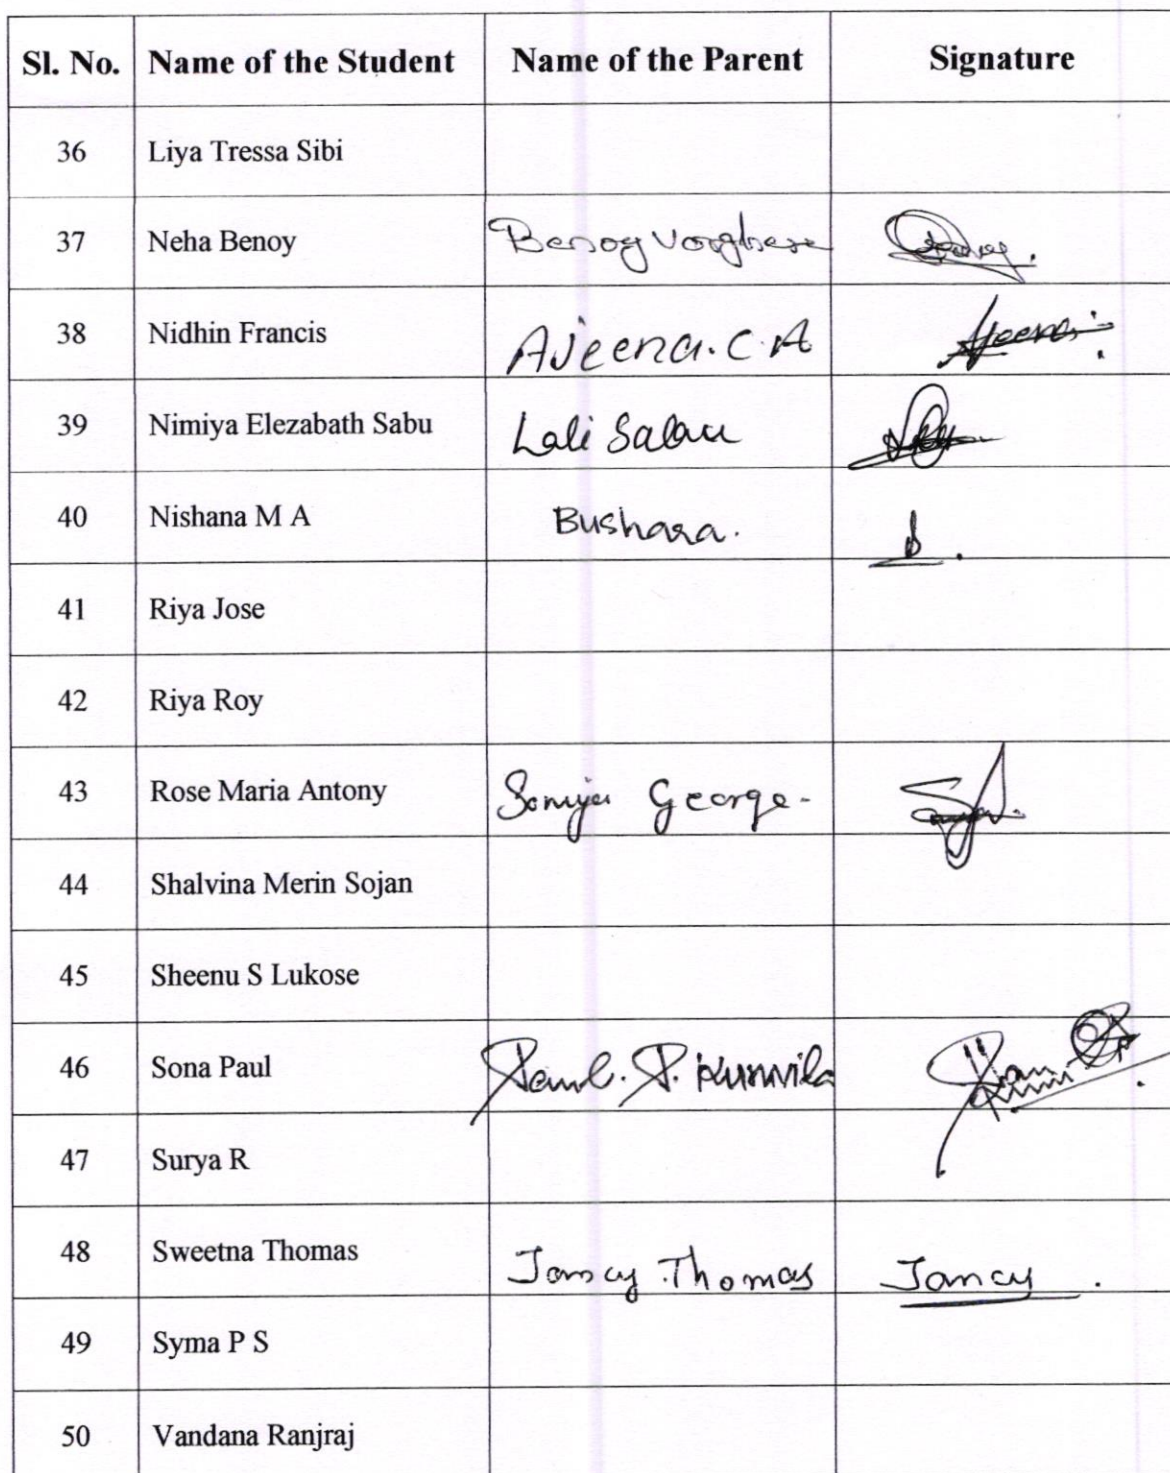 Sl. No. Name of the Student Name of the Parent Signature
36 Liya Tressa Sibi
37 Neha Benoy Benoy Varghese
38 Nidhin Francis Ajeena. C. A
39 Nimiya Elezabath Sabu Lali Sabu
40 Nishana M A Bushara. B.
41 Riya Jose
42 Riya Roy
43 Rose Maria Antony Soniya George
44 Shalvina Merin Sojan
45 Sheenu S Lukose
46 Sona Paul Paul. P. Kuruvila
47 Surya R
48 Sweetna Thomas Jancy Thomas Jancy
49 Syma P S
50 Vandana Ranjraj